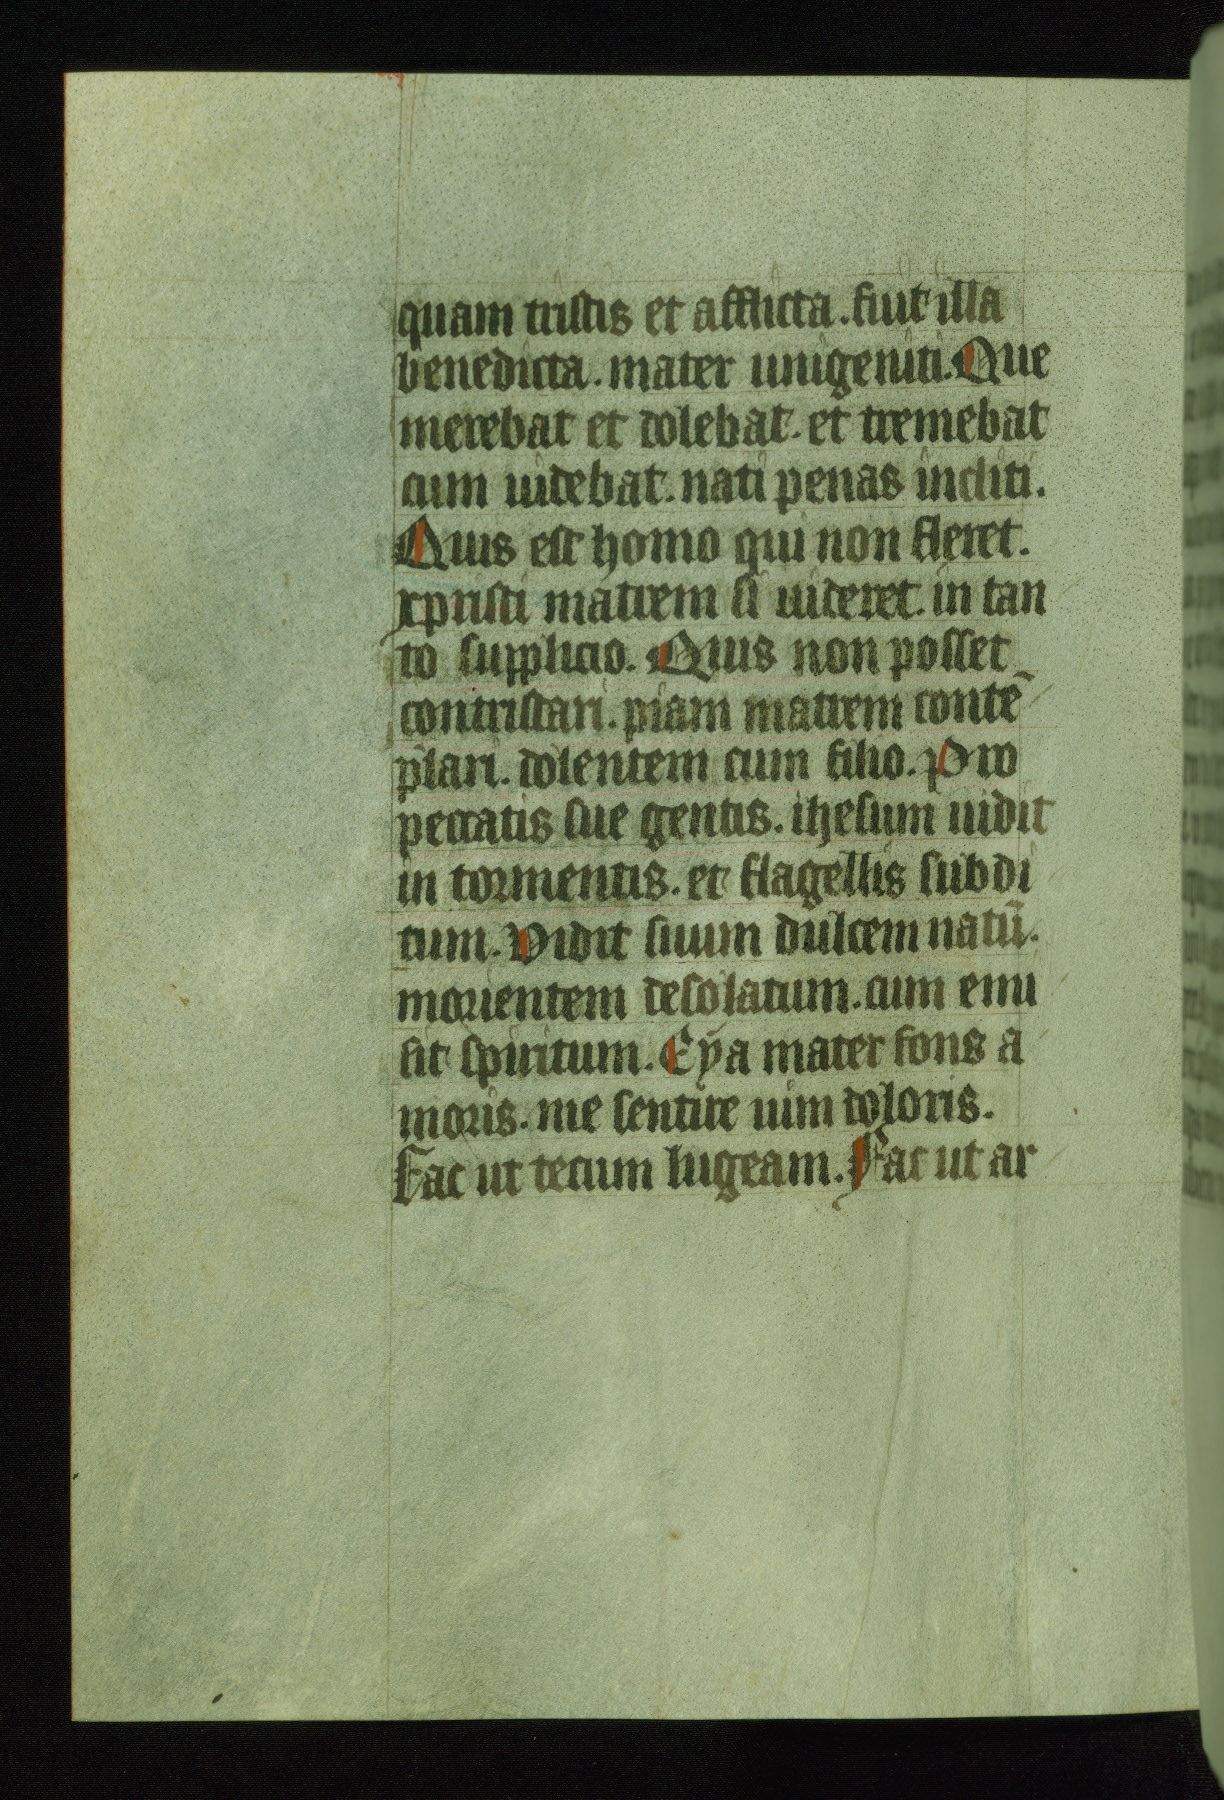 quam tristis et afflicta. fuit illa
benedicta. mater unigeniti. Que
merebat et dolebat. et tremebat
cum uidebat. nati penas incliti.
Quis est homo qui non fleret.
xpristi matrem si uideret. in tan
to supplicio. Quis non posset
contristari. piam matrem contē
plari. dolentem cum filio. Pro
peccatis sue gentis. ihesum uidit
in tormentis. et flagellis subdi
tum. Vidit suum dulcem natū.
morientem desolatum. cum emi
sit spiritum. Eya mater fons a
moris. me sentire uim doloris.
Fac ut tecum lugeam. Fac ut ar